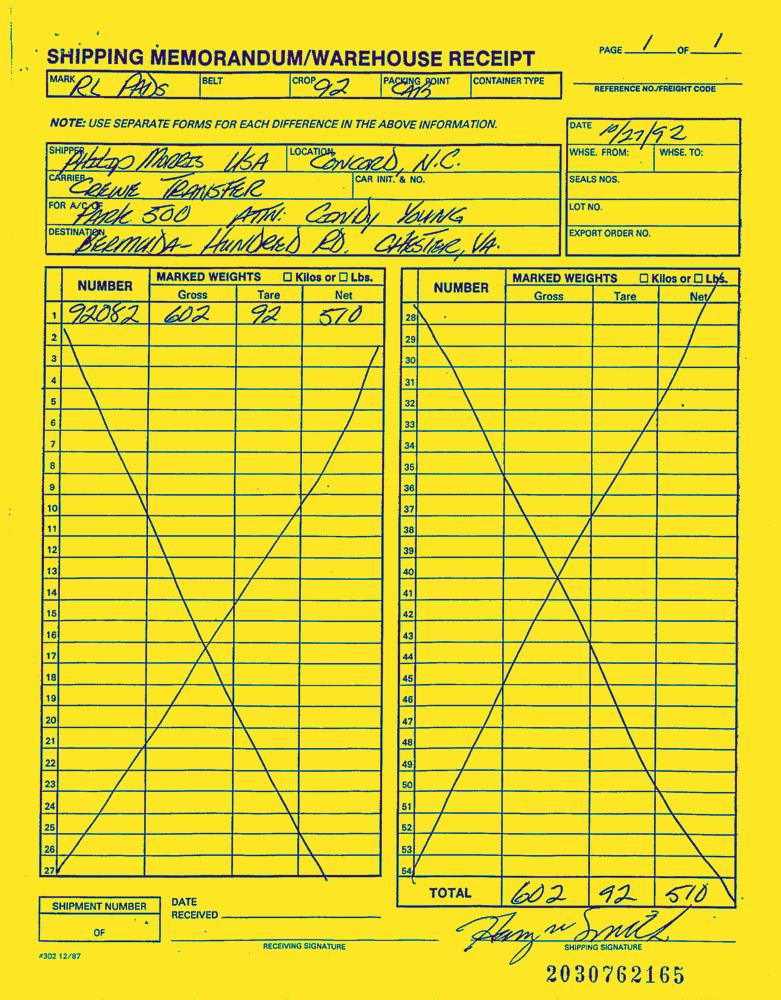 PAGE 1 OF 1
SHIPPING MEMORANDUM/WAREHOUSE RECEIPT
MARK RL PADS BELT CROP 92 PACKING POINT CAB CONTAINER TYPE
REFERENCE NO./FREIGHT CODE
NOTE: USE SEPARATE FORMS FOR EACH DIFFERENCE IN THE ABOVE INFORMATION.
DATE 10/27/92
SHIPPER Philip Morris USA LOCATION Concord, N.C.
WHSE. FROM: WHSE. TO:
CARRIER Crewe Transfer CAR INIT. & NO.
SEALS NOS.
FOR A/C OF Park 500 Attn: Condy Young
LOT NO.
DESTINATION Bermuda Hundred Rd. Chester, Va.
EXPORT ORDER NO.
NUMBER MARKED WEIGHTS Kilos or Lbs.
Gross Tare Net
1 92082 602 92 510
2
3
4
5
6
7
8
9
10
11
12
13
14
15
16
17
18
19
20
21
22
23
24
25
26
27
NUMBER MARKED WEIGHTS Kilos or Lbs.
Gross Tare Net
28
29
30
31
32
33
34
35
36
37
38
39
40
41
42
43
44
45
46
47
48
49
50
51
52
53
54
TOTAL 602 92 510
SHIPMENT NUMBER
OF
DATE
RECEIVED
RECEIVING SIGNATURE
Smith
SHIPPING SIGNATURE
#302 12/87
2030762165